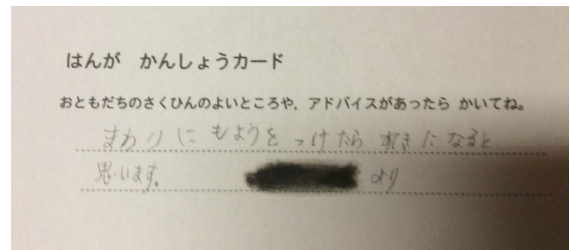 はんが　かんしょうカード
おともだちのさくひんのよいところや、アドバイスがあったら かいてね。
まわりに もようを つけたら すきになると
思います。 より